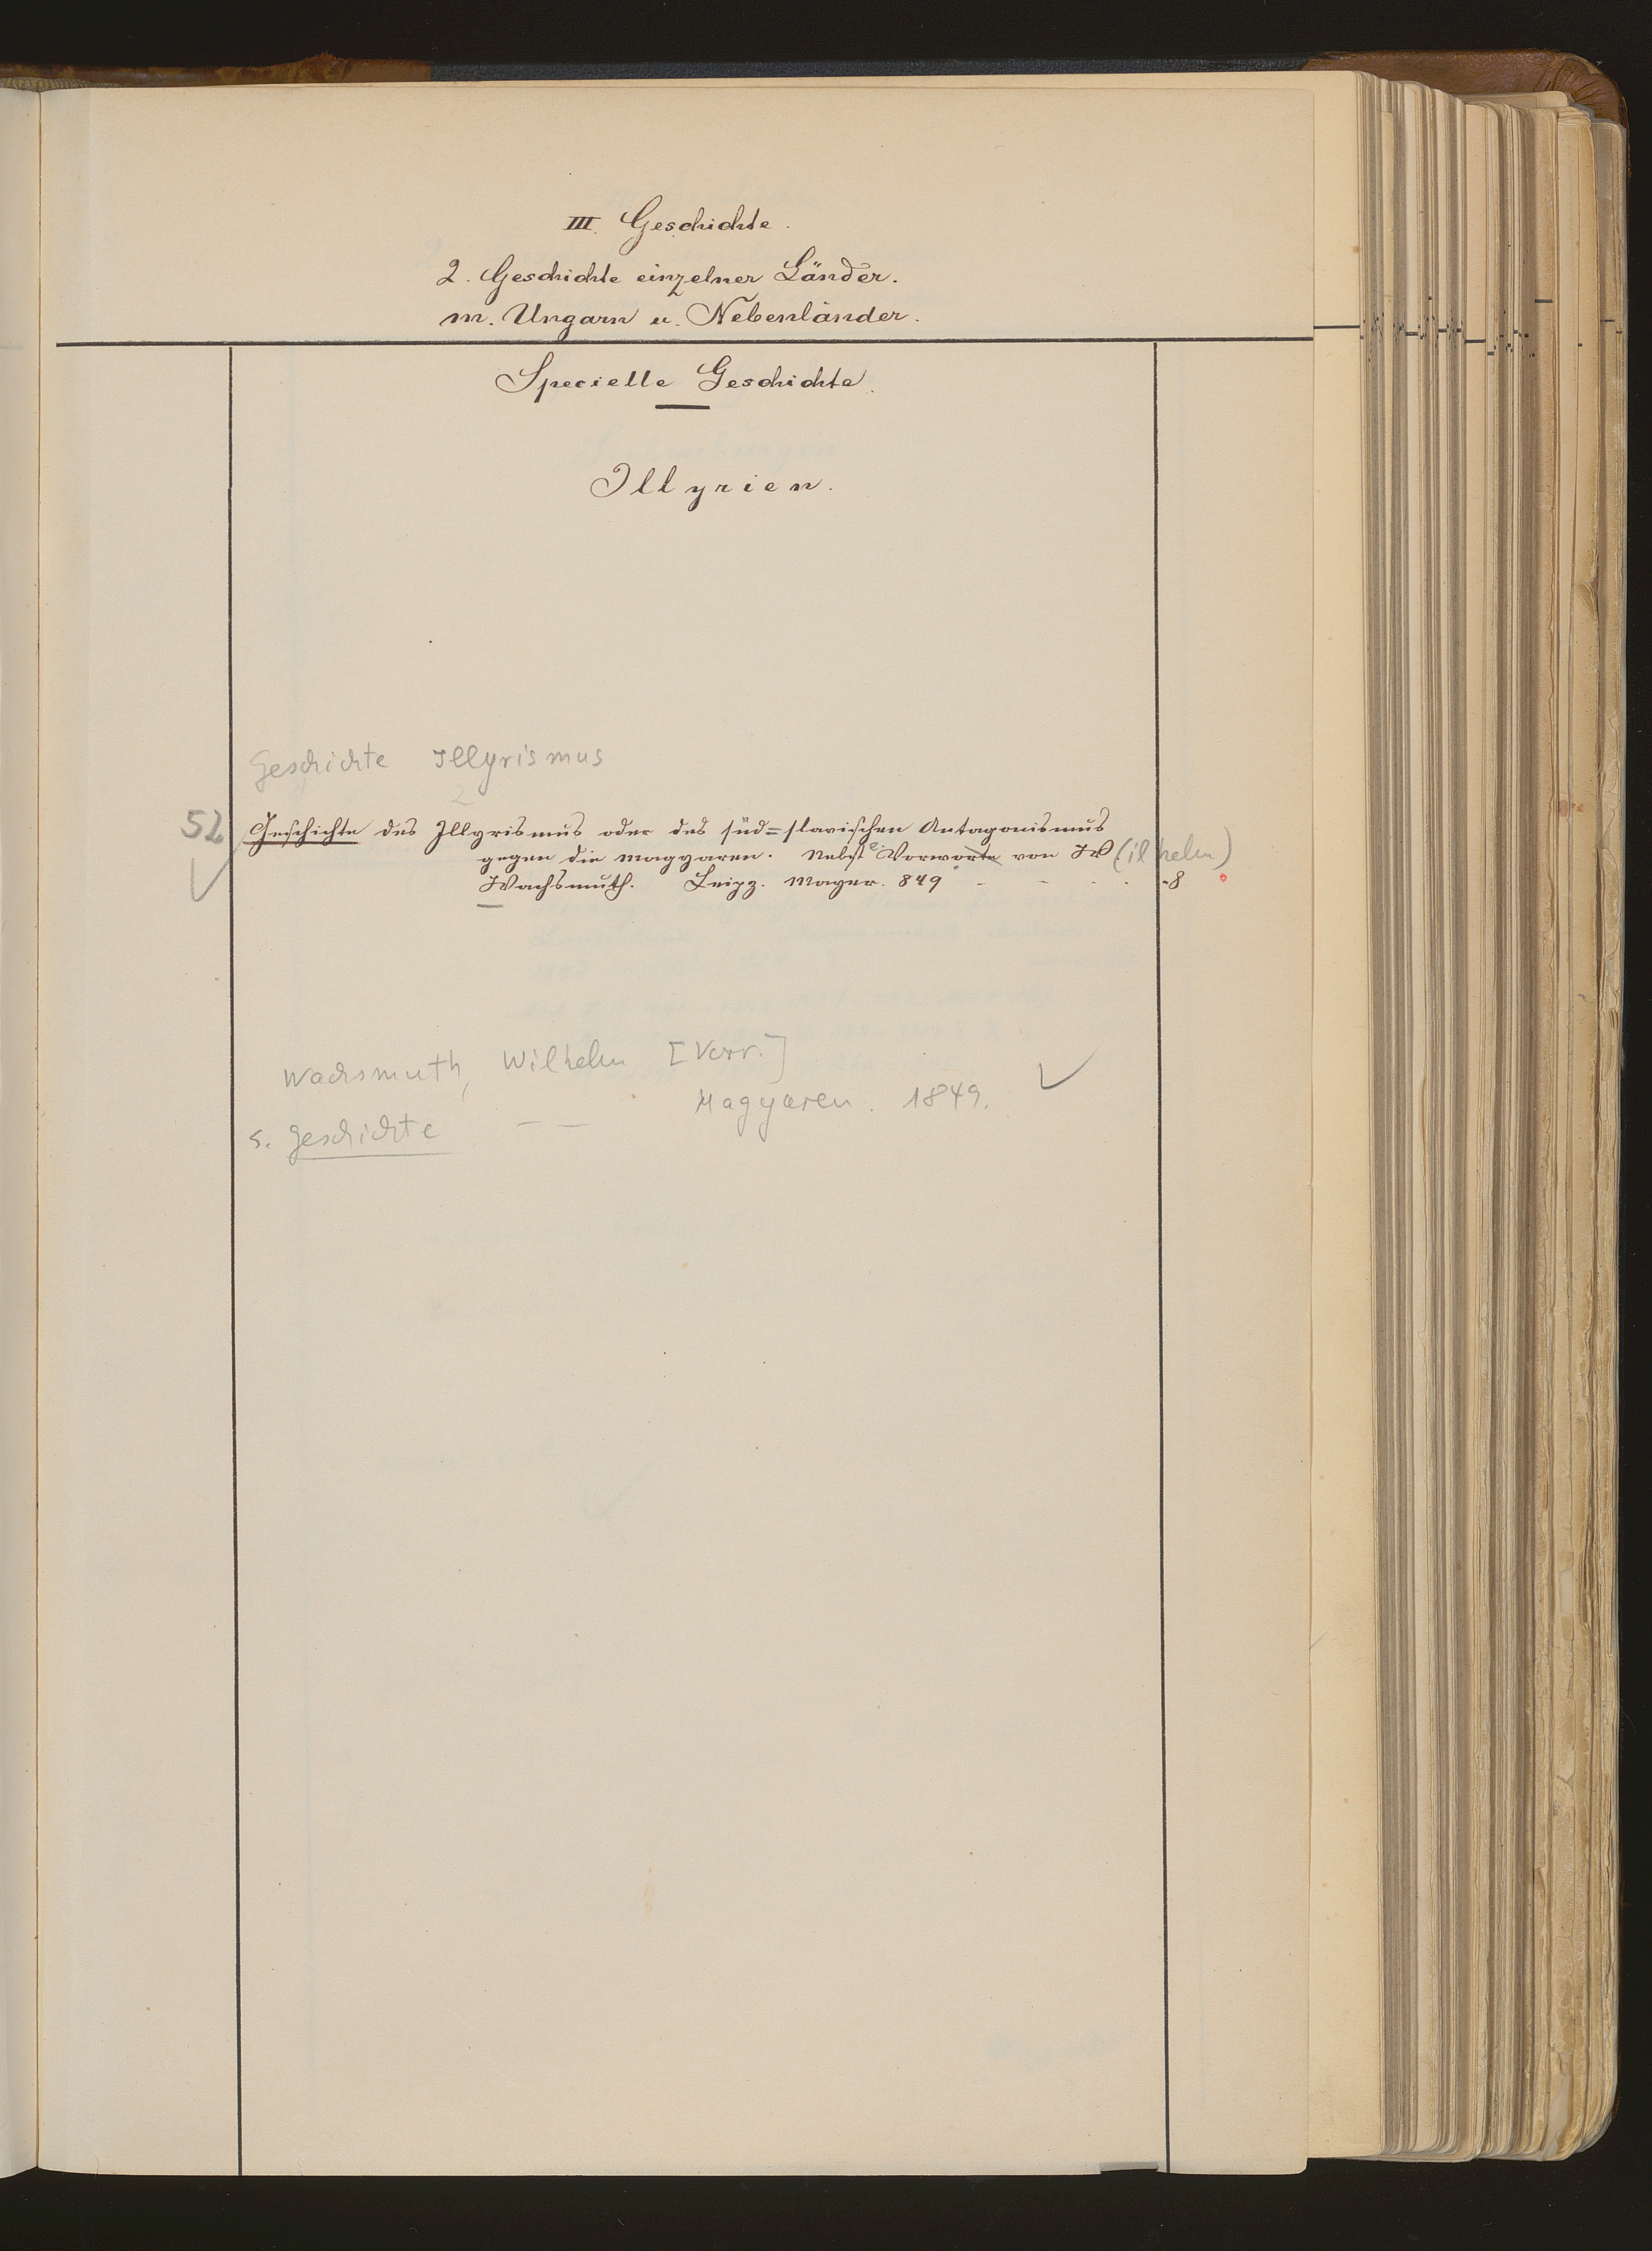 III. Geschichte.
2. Geschichte einzelner Länder.
m. Ungarn u. Nebenländer.
Specielle Geschichte.
Illyrien.
Geschichte Illyrismus
2
52 Geschichte des Illyrismus oder des süd=slavischen Antagonismus
gegen die Magyaren. Nebst e. Vorworte von W(ilhelm)
Wachsmuth. Leipz. Mayer. 849 - - . . -8
Wachsmuth, Wilhelm [Vorr.]
s. Geschichte — — Magyaren. 1849.